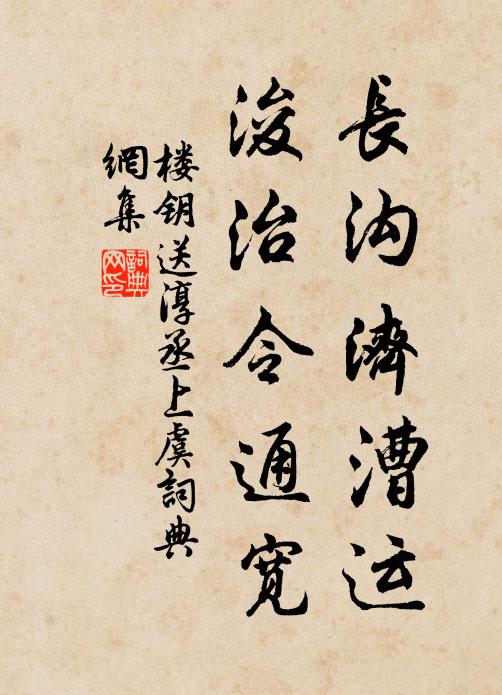 長沟濟漕运
浚治令通寬
楼钥送淳丞上虞詞典
網集
詞典网印